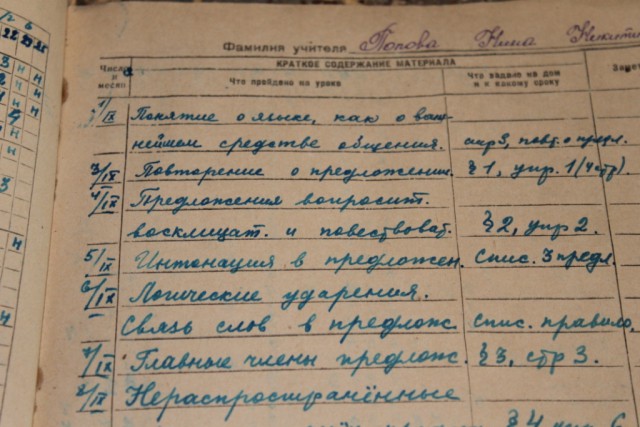 Фамилия учителя Попова Нина Никити
КРАТКОЕ СОДЕРЖАНИЕ МАТЕРИАЛА
Число и месяц Что пройдено на уроке Что задано на дом и к какому сроку Замет
1/IX Понятие о языке, как о важ-
нейшем средстве общения. стр 3, повт. о предл.
3/IX Повторение о предложении. § 1, упр. 1 (4 стр).
4/IX Предложения вопросит.
восклицат. и повествоват. § 2, упр 2.
5/IX Интонация в предложен. Спис. 3 предл.
6/IX Логические ударения.
Связь слов в предлож Спис. правило,
7/IX Главные члены предлож. § 3, стр 3.
8/IX Нераспространённые
§ 4 упр 6